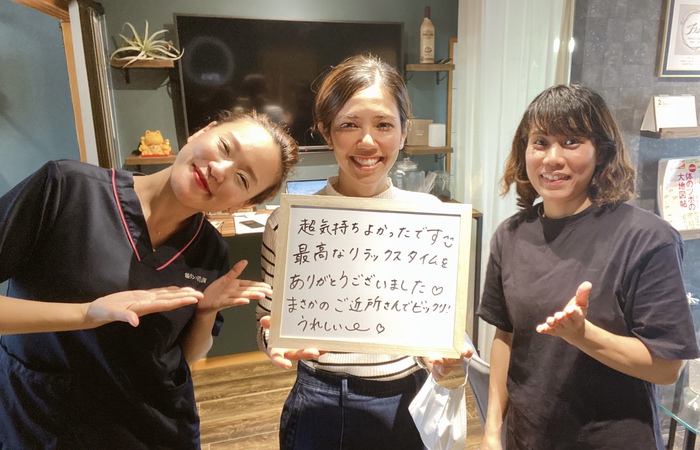 超気持ちよかったです
最高なリラックスタイムを
ありがとうございました♡
まさかのご近所さんでビックリ!
うれしいー♡
体のツボの
大地図帖